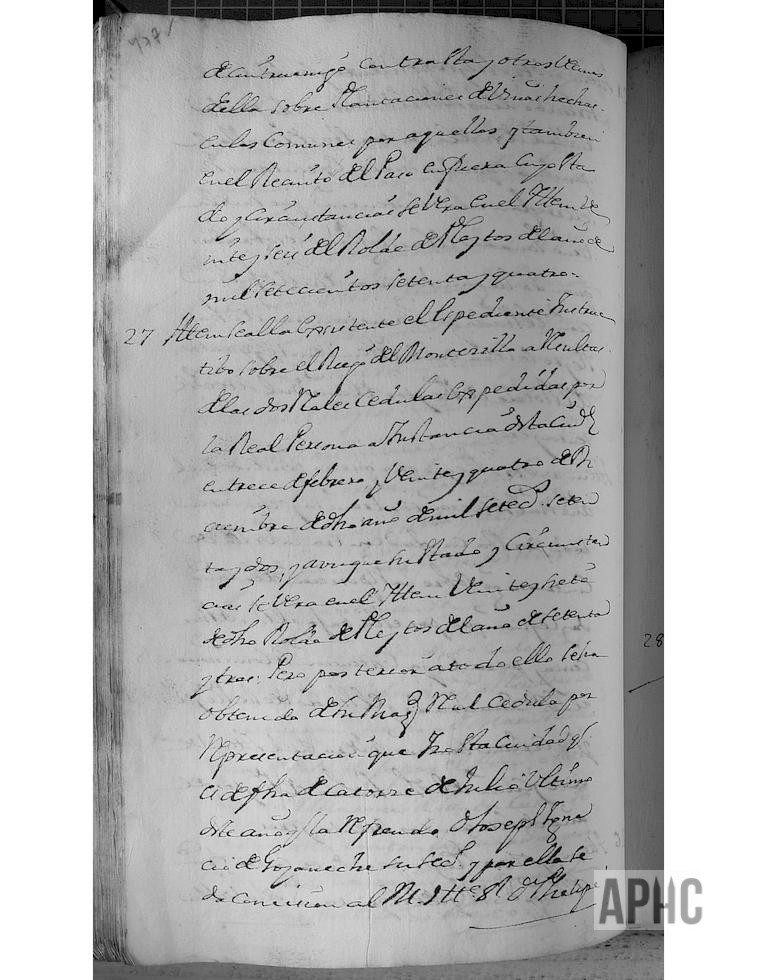 737
de Cintruenigo contra Esta, y otros Vecinos
della sobre Plantaciones de Viñas hechas
en los Comunes por aquellos, y tambien
en el Recinto del Paso en piera Cuyo Esta
do, y Circunstancias se Vera en el Ittem Ve
inte y seis del Rolde de Pleytos del año de
mil setecientos setenta y quatro.
27 Ittem se alla Existente el Expediente Instruc
tibo sobre el Riego del Montecillo a Resultas
de las dos Reales Cedulas Expedidas por
la Real Persona a Instancia de esta Ciud.d
en trece de febrero, y Veinte y quatro de Di
ciembre de dho año de mil setec.s seten
ta y dos, y aunque su Estado, y Circunstan
cias se Vera en el Ittem Veinte y siete
de dho Rolde de Pleytos del año de setenta
y tres. Pero posterior a todo ello se ha
obtenido de Su Mag.d Real Cedula por
Representacion que Izo Esta Ciudad q.e
es de fha de Catorze de Julio Ultimo
de este año y la Refrendo D.n Joseph Igna
cio de Goyeneche su Sec.o y por ella se
da Comision al M. Itt.e S.r D.n Phelipe
28
APHC